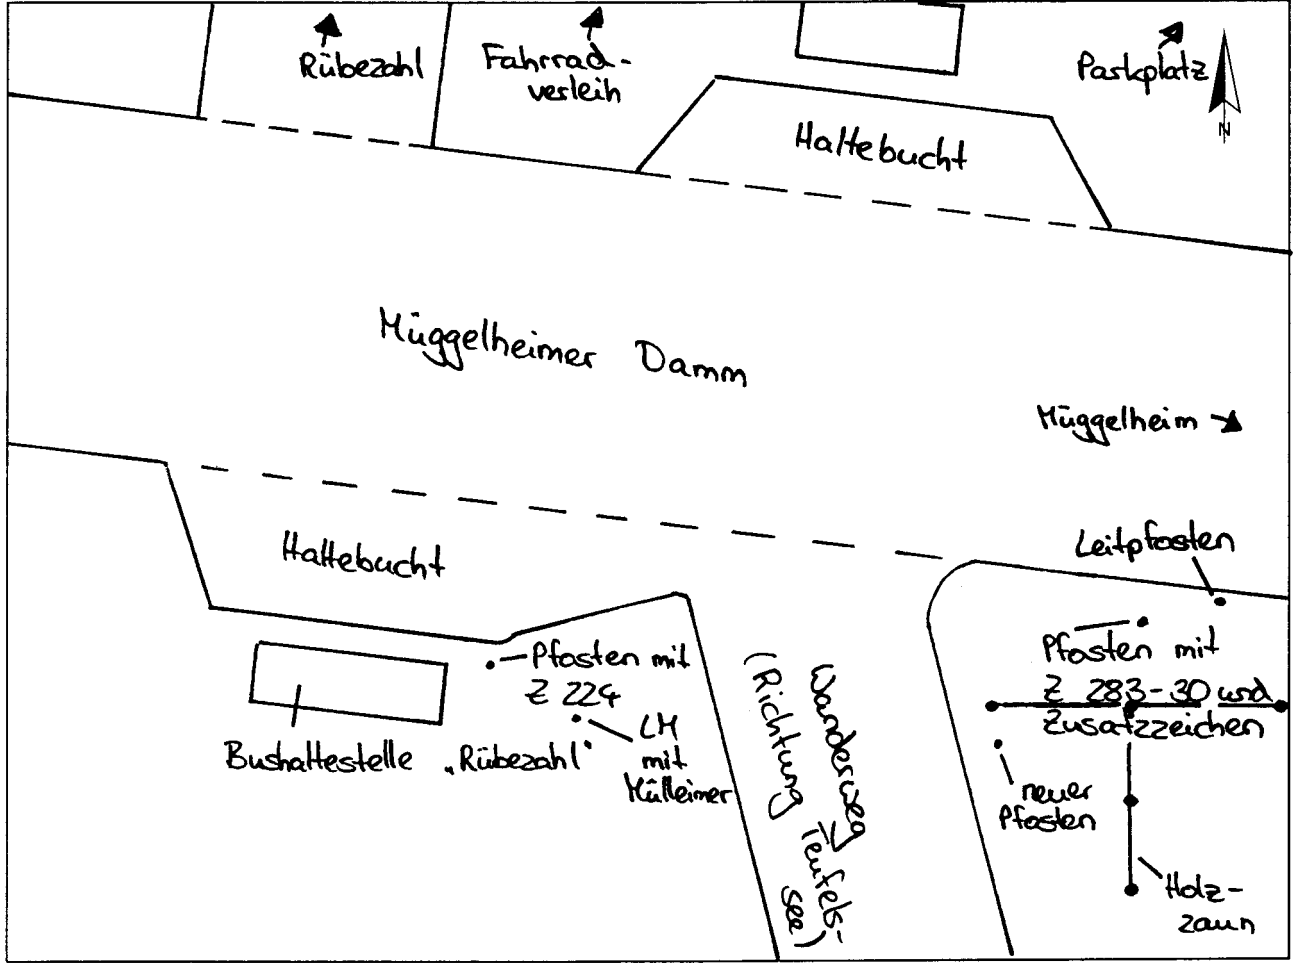 Rübezahl
Fahrrad-
verleih
Parkplatz
N
Haltebucht
Müggelheimer Damm
Müggelheim
Haltebucht
Leitpfosten
Pfosten mit
Z 224
LM
mit
Mülleimer
Bushaltestelle „Rübezahl"
Wanderweg
(Richtung Teufels-
see)
Pfosten mit
Z 283-30 und
Zusatzzeichen
neuer
Pfosten
Holz-
zaun